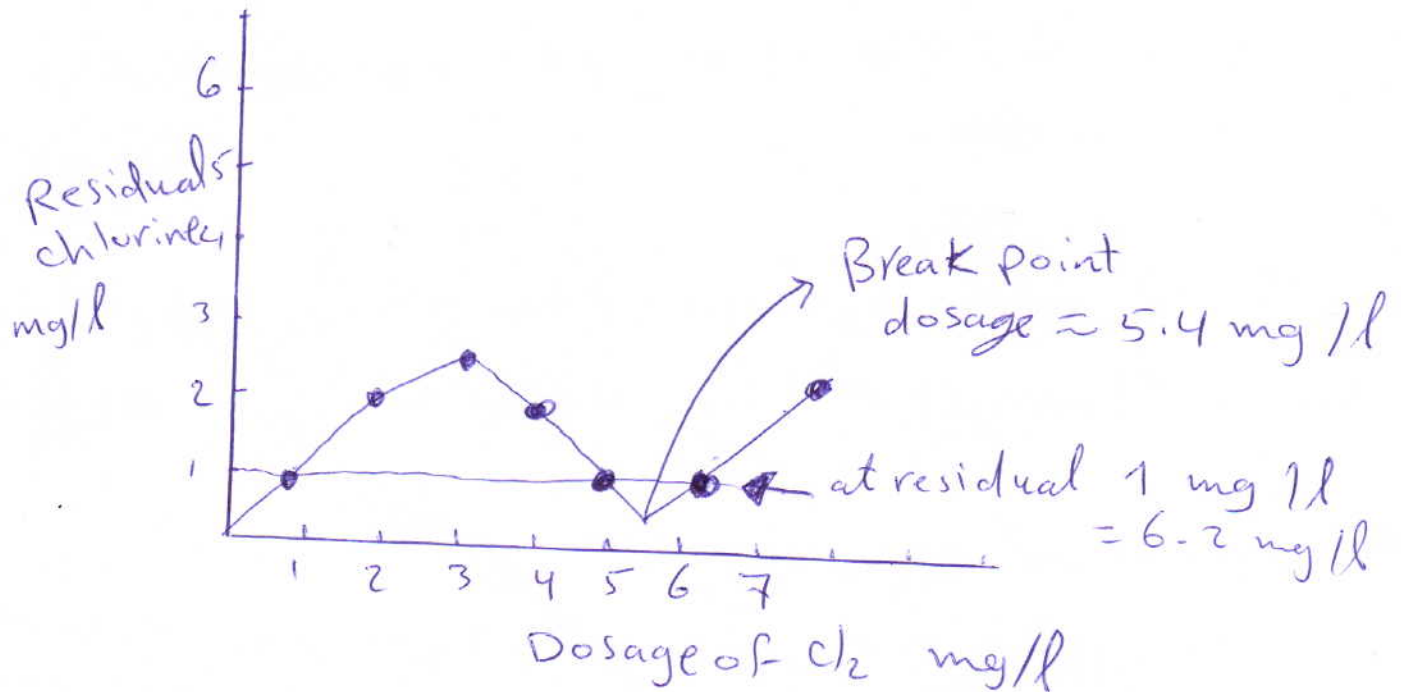 6
Residuals 5
chlorine 4
mg/l
3
2
1
Break point
dosage = 5.4 mg/l
at residual 1 mg/l
= 6.2 mg/l
1 2 3 4 5 6 7
Dosage of Cl2 mg/l